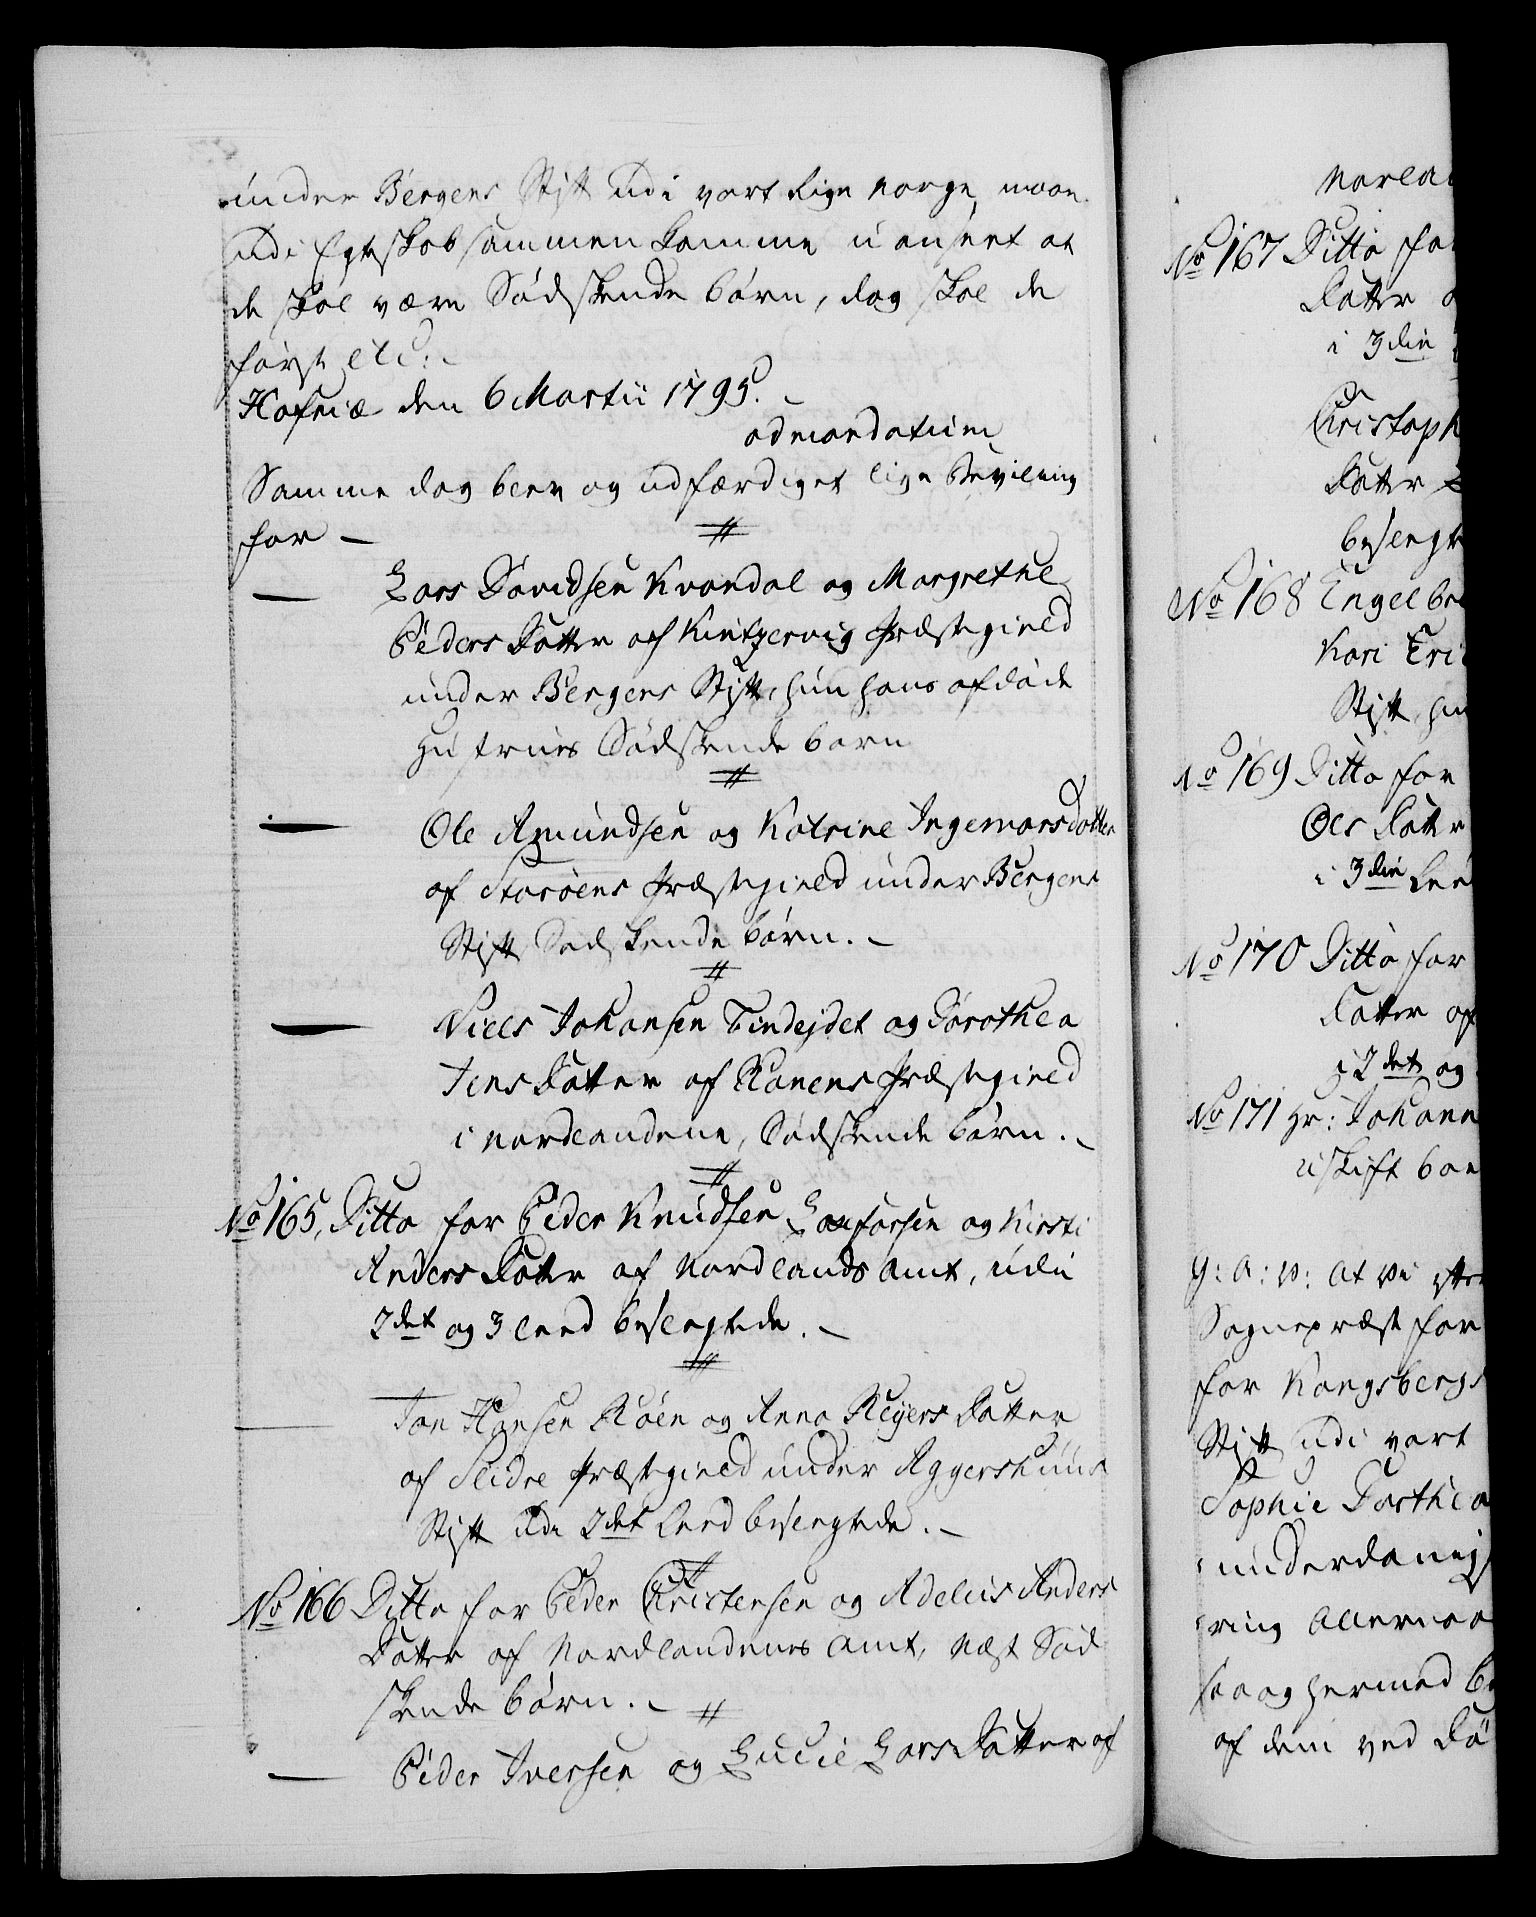 under Bergens Stift udi vort Rige Norge, maae
udi Egteskab sammen komme uanseet at
de skal være Sødskende børn, dog skal de
først etc:
Hafniæ den 6 Martii 1795.
ad mandatum
Samme dag blev og udfærdiget lige Bevilling
for —
Lars Davidsen Kvandal og Margrethe
Peders Datter af Kintzervig Præstegield
under Bergens Stift, hun hans afdøde
Hustrues Sødskende barn
Ole Amundsen og Katrine Ingemarsdatter
af Storøens Præstegield under Bergens
Stift Sødskende børn.
Niels Johansen Tindejdet og Dorothea
Jens Datter af Ranens Præstegield
i Nordlandene, Sødskende børn.
No 165, Ditto for Peder Knudsen og Kirsti
Anders Datter af Nordlands Amt, udi
2det og 3 Leed beslegtede.
Jon Hansen Røen og Anna Reyers Datter
af Slidre Præstegield under Aggershuus
Stift udi 2det Leed beslegtede.
No 166 Ditto for Peder Christensen og Adelus Anders
Datter af Nordlandenes Amt, Næst Sød
skende børn.
Peder Iversen og Lucie Lars Datter af
No 167 Ditto for
Datter
i 3die
Datter
No 168 Engelbre
Kari Eri
Stift, hun
No 169 Ditto for
Oles Datter
i 3die Lee
No 170 Ditto for
Datter af
i 2det og
No 171 Hr: Johann
uskift boe
G: A: V: At Vi efter
Sognepræst for
for Kongsbergs
Stift udi vort
Sophie Dorthea
underdanigs
ring Allernaa
saa og hermed be
af dem ved Dø